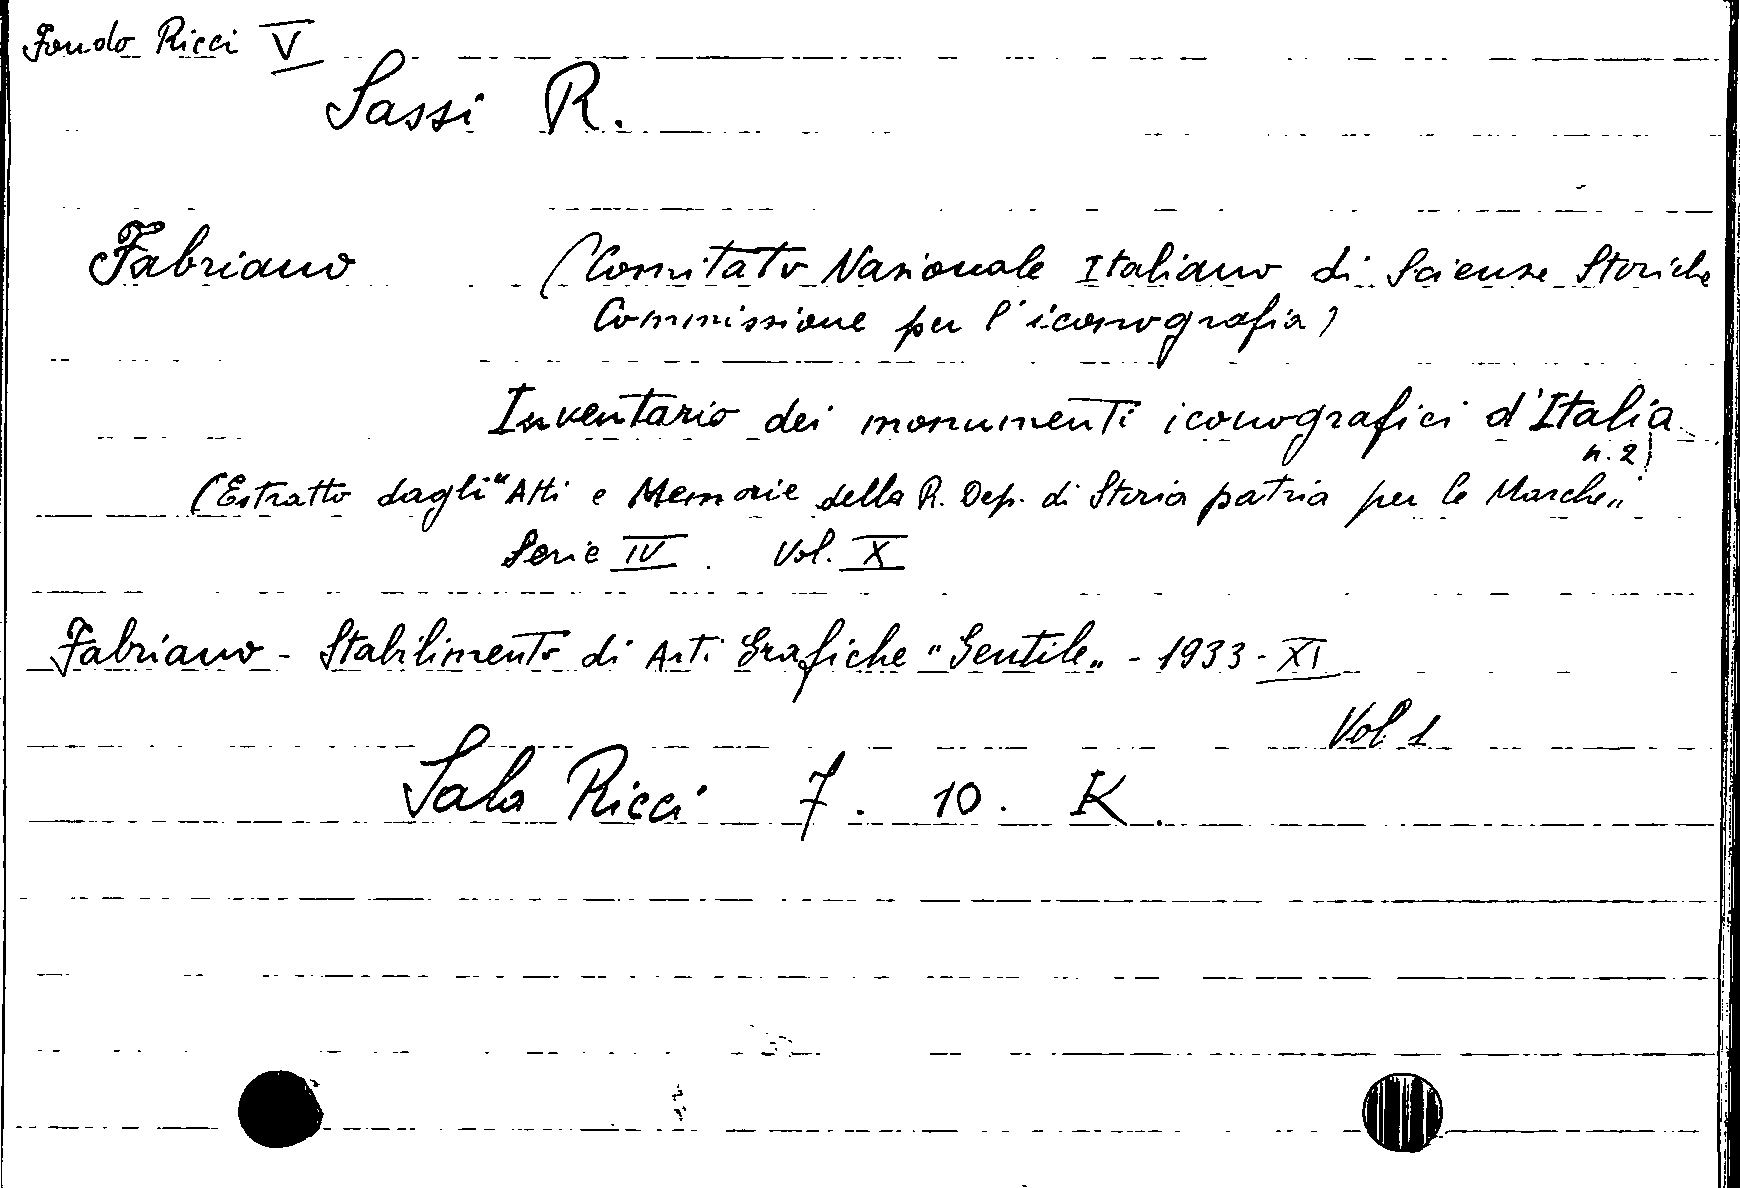 Fondo Ricci V
Sassi R.
Fabriano (Comitato Nazionale Italiano di Scienze Storiche
Commissione per l'iconografia)
Inventario dei monumenti iconografici d'Italia
n. 2)
(Estratto dagli "Atti e Memorie della R. Dep. di Storia patria per le Marche„
Serie IV. Vol. X
Fabriano - Stabilimento di Arti Grafiche "Gentile„ - 1933 - XI
Vol 1
Sala Ricci 7. 10. K.